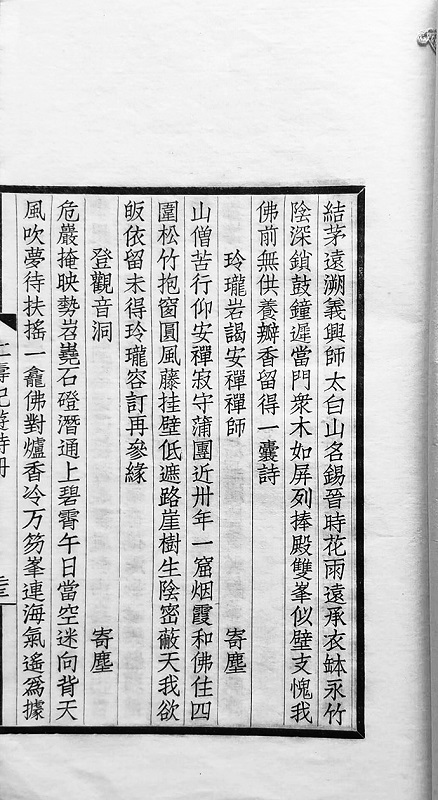 結茅遠溯義興師太白山名錫晉時花雨遠承衣缽永竹
陰深鎖鼓鐘遲當門衆木如屏列捧殿雙峯似壁支愧我
佛前無供養瓣香留得一囊詩
玲瓏岩謁安禪禪師 寄塵
山僧苦行仰安禪寂守蒲團近卅年一窟烟霞和佛住四
圍松竹抱窗圓風藤挂壁低遮路崖樹生陰密蔽天我欲
皈依留未得玲瓏容訂再參緣
登觀音洞 寄塵
危巖掩映勢岧嶢石磴潛通上碧霄午日當空迷向背天
風吹夢待扶搖一龕佛對爐香冷万笏峯連海氣遙爲據